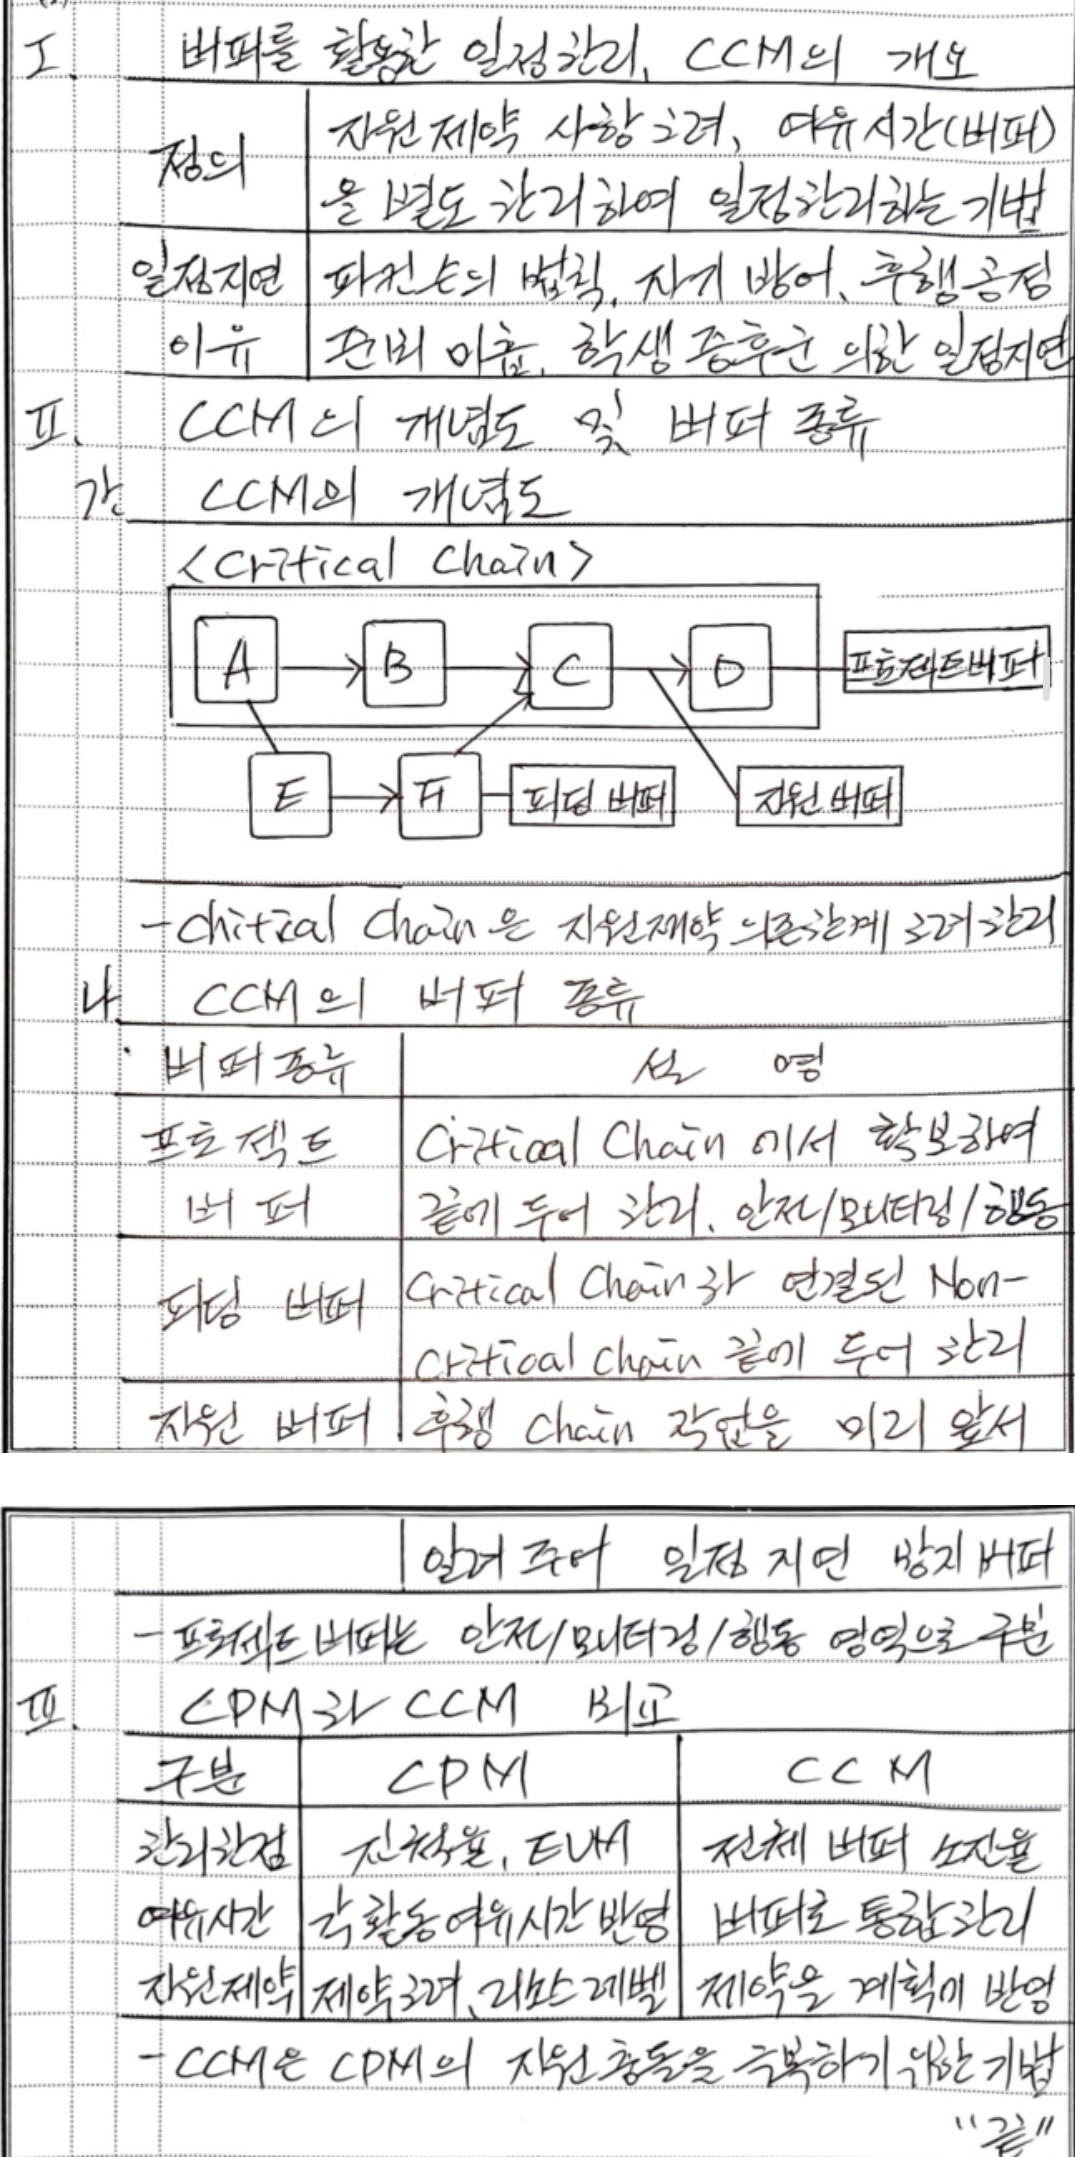 I. 버퍼를 활용한 일정관리, CCM의 개요
정의 자원제약 사항 고려, 여유시간(버퍼)
을 별도 관리하여 일정관리하는 기법
일정지연 파킨슨의 법칙, 자기 방어, 후행공정
이유 준비 미흡, 학생 증후군 의한 일정지연
II. CCM의 개념도 및 버퍼 종류
가. CCM의 개념도
<Critical Chain>
A B C D 프로젝트버퍼
E F 피딩버퍼 자원버퍼
- Chitical Chain은 자원제약 의존관계 고려 관리
나. CCM의 버퍼 종류
버퍼종류 설 명
프로젝트 Critical Chain에서 확보하여
버퍼 끝에 두어 관리, 안전/모니터링/행동
피딩 버퍼 Critical Chain과 연결된 Non-
Critical Chain 끝에 두어 관리
자원 버퍼 후행 Chain 작업을 미리 앞서
알려 주어 일정 지연 방지 버퍼
- 프로젝트 버퍼는 안전/모니터링/행동 영역으로 구분
III. CPM과 CCM 비교
구분 CPM CCM
관리관점 진척율, EVM 전체 버퍼 소진율
여유시간 각 활동 여유시간 반영 버퍼로 통합관리
자원제약 제약고려, 리소스 레벨 제약을 계획에 반영
- CCM은 CPM의 자원 충돌을 극복하기 위한 기법
"끝"